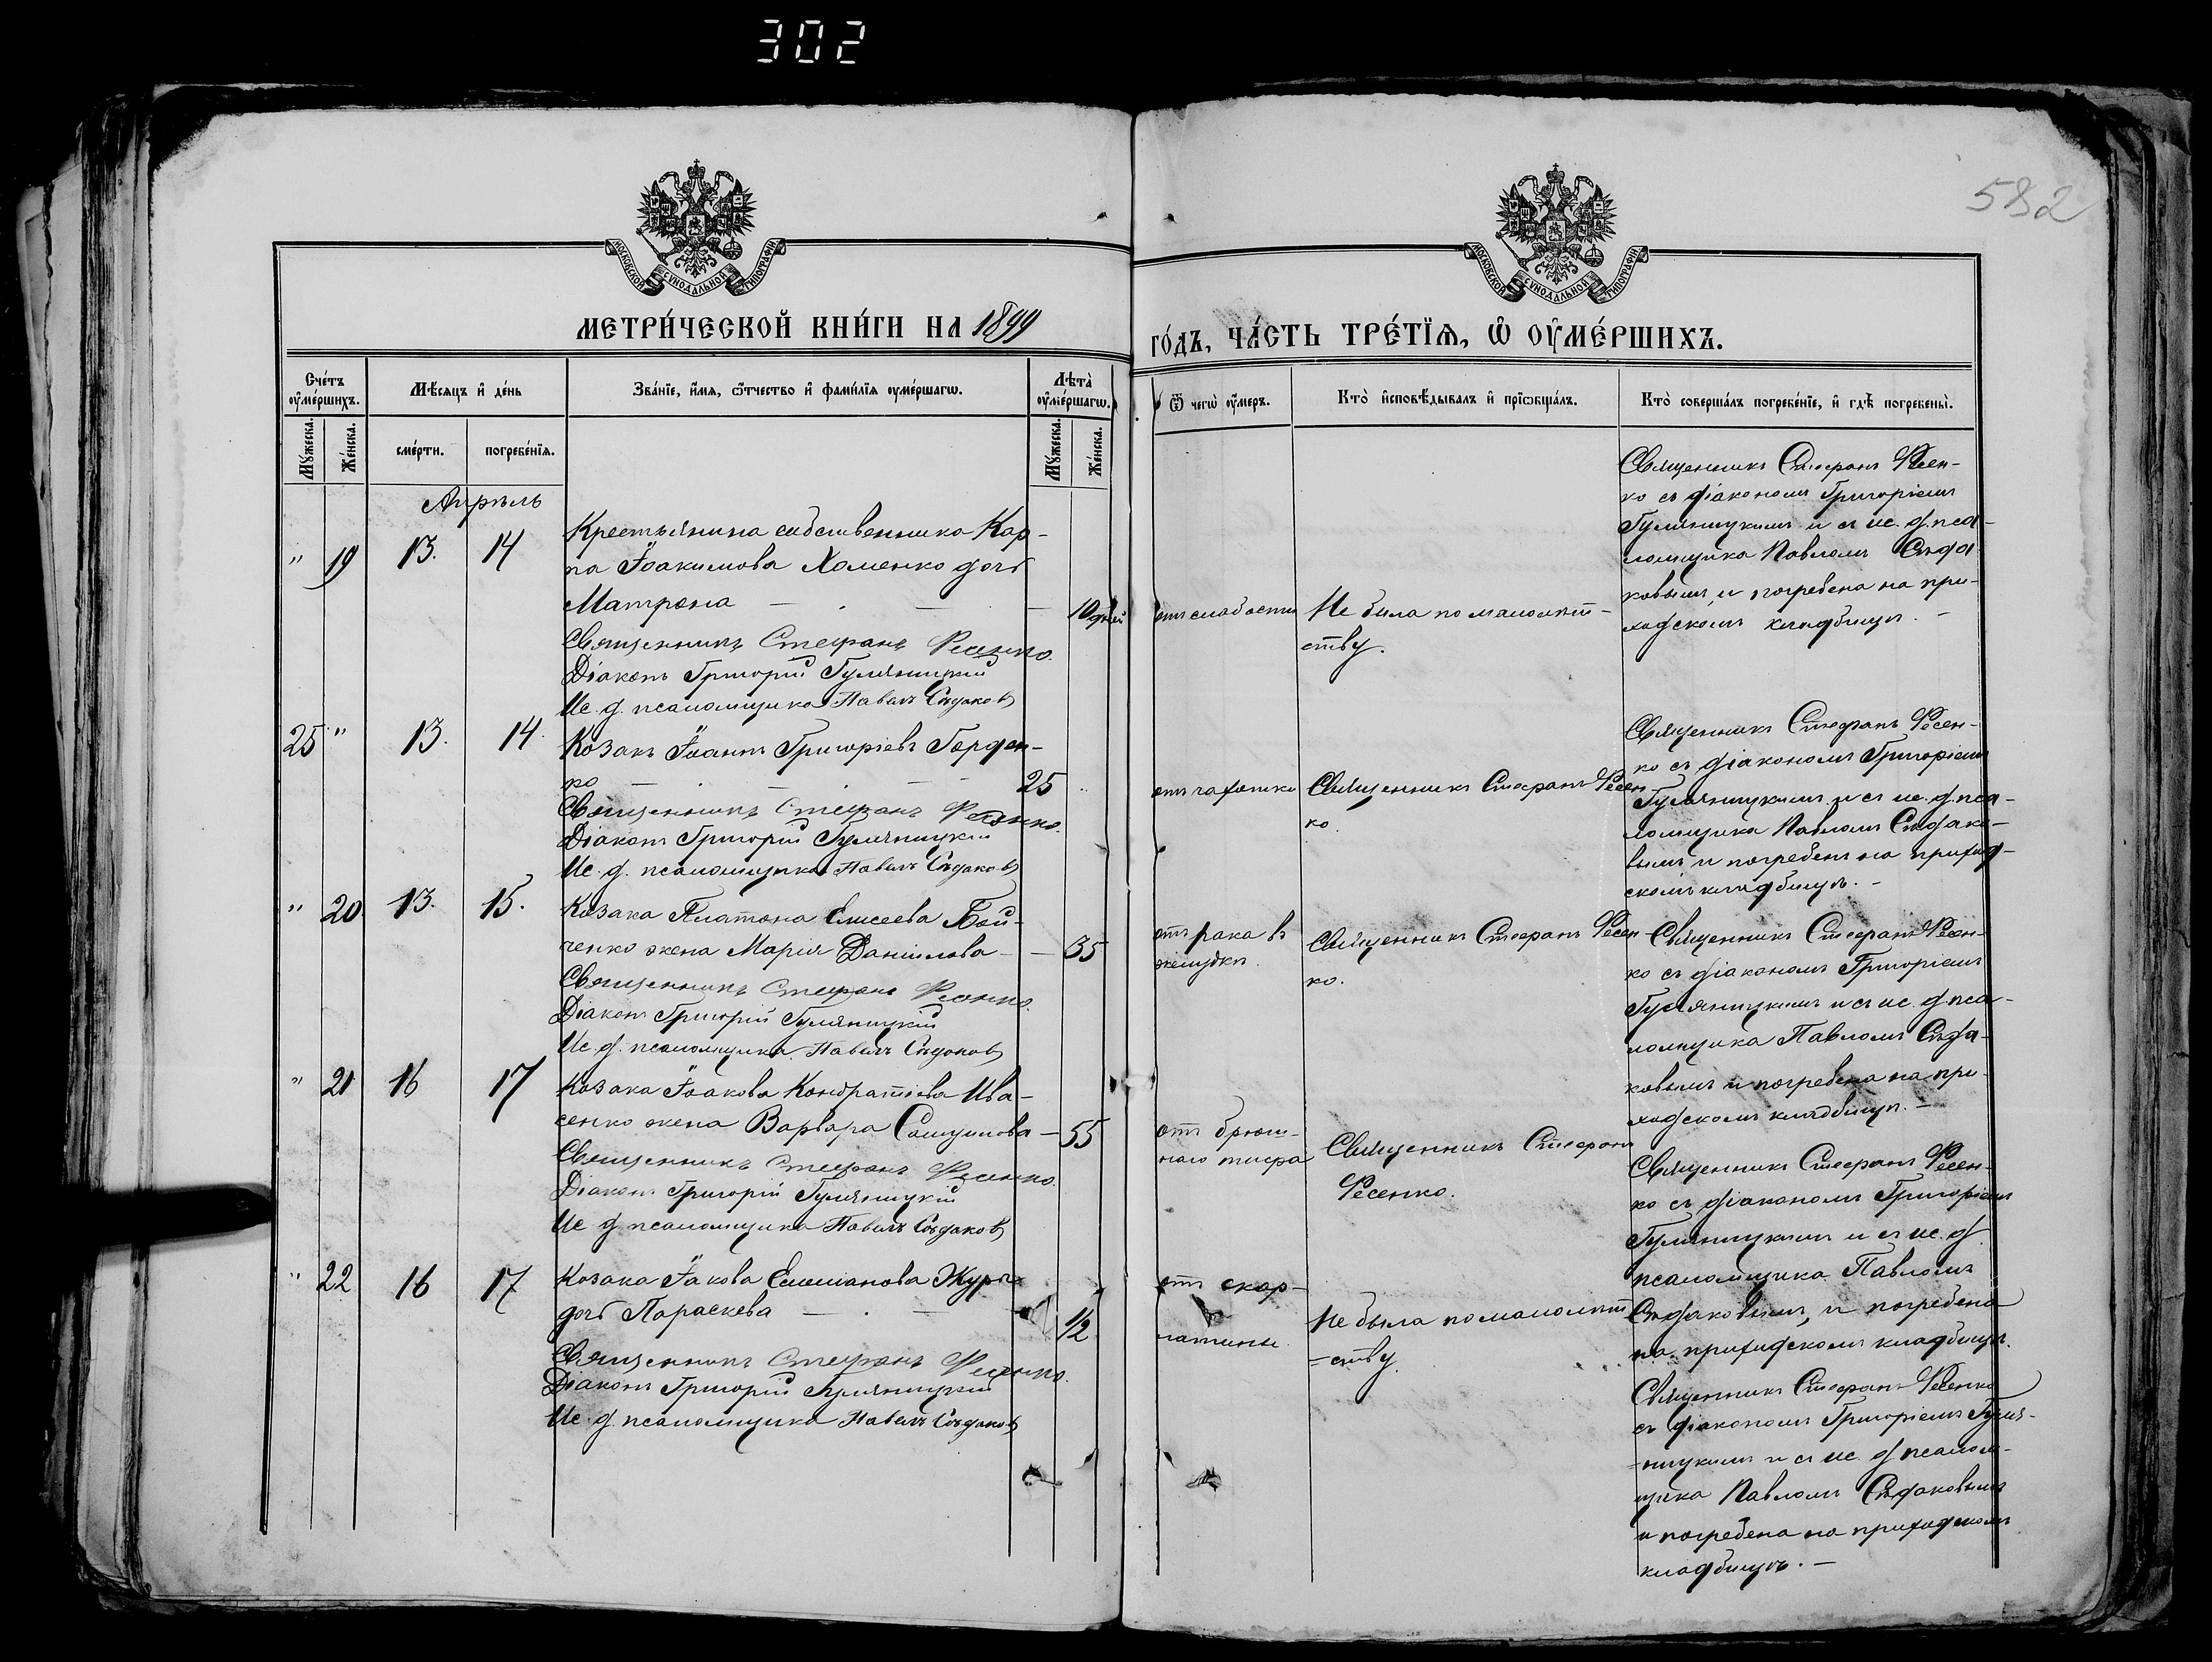 302
582
МОСКОВСКОЙ СУНОДАЛЬНОЙ ТИПОГРАФІИ
МОСКОВСКОЙ СУНОДАЛЬНОЙ ТИПОГРАФІИ
МЕТРИ́ЧЕСКОЙ КНИ́ГИ НА 1899
ГО́ДЪ, ЧА́СТЬ ТРЕ́ТЇѦ, Ѡ҆ ОУ҆МЕ́РШИХЪ.
Сче́тъ оу҆ме́ршихъ.
Мꙋ́жеска.
Же́нска.
Мѣ́сяцъ и҆ де́нь
сме́рти.
погребе́нїя.
Зва́нїе, и҆́мя, ѻ҆́тчество и҆ фами́лїя оуме́ршагѡ.
Лѣ́та оу҆ме́ршагѡ.
Мꙋ́жеска.
Же́нска.
Ѿ чегѡ̀ оу҆́меръ.
Кто̀ и҆сповѣ́дывалъ и҆ прїѡбща́лъ.
Кто̀ соверша́лъ погребе́нїе, и҆ гдѣ̀ погребены̀.
Апрѣль
" 19 13. 14
Крестьянина собственника Кар-
па Іоакимова Хоменко дочь
Матрона — . — — 10 дней
Священникъ Стефанъ Фесенко.
Діаконъ Григорій Гуляницкій
Ис. д. псаломщика Павелъ Сѣдаковъ
отъ слабости
Не была по малолѣт-
ству.
Священникъ Стефанъ Фесен-
ко съ діакономъ Григоріемъ
Гуляницкимъ и съ ис. д. пса-
ломщика Павломъ Сѣда
ковымъ, и погребена на при-
ходскомъ кладбищѣ. —
25 " 13. 14.
Козакъ Іоаннъ Григоріевъ Горден-
ко — . — - 25
Священникъ Стефанъ Фесенко.
Діаконъ Григорій Гуляницкій
Ис. д. псаломщика Павелъ Сѣдаковъ
отъ чахотки
Священникъ Стефанъ Фесен-
ко.
Священникъ Стефанъ Фесен-
ко съ діакономъ Григоріемъ
Гуляницкимъ и съ ис. д. пса-
ломщика Павломъ Сѣдако-
вымъ и погребенъ на приход-
скомъ кладбищѣ. -
" 20 13. 15.
Козака Платона Елисеева Бой-
ченко жена Марія Даніилова — — 35
Священникъ Стефанъ Фесенко.
Діаконъ Григорій Гуляницкій
Ис. д. псаломщика Павелъ Сѣдаковъ
отъ рака въ
желудкѣ.
Священникъ Стефанъ Фесен-
ко.
Священникъ Стефанъ Фесен-
ко съ діакономъ Григоріемъ
Гуляницкимъ и съ ис. д. пса-
ломщика Павломъ Сѣда-
ковымъ и погребена на при-
ходскомъ кладбищѣ. —
" 21 16 17
Козака Іоакова Кондратіева Ива-
сенко жена Варвара — 55
Священникъ Стефанъ Фесенко.
Діаконъ Григорій Гуляницкій
Ис. д. псаломщика Павелъ Сѣдаковъ
отъ брюш-
наго тифа
Священникъ Стефанъ
Фесенко.
Священникъ Стефанъ Фесен-
ко съ діакономъ Григоріемъ
Гуляницкимъ и съ ис. д.
псаломщика Павломъ
Сѣдаковымъ, и погребена
на приходскомъ кладбищѣ.
" 22 16 17
Козака Іакова
дочь Параскева — . — 1/2
Священникъ Стефанъ Фесенко.
Діаконъ Григорій Гуляницкій
Ис. д. псаломщика Павелъ Сѣдаковъ
отъ скар-
латины.
Не была по малолѣт
=ству.
Священникъ Стефанъ Фесенко
съ діакономъ Григоріемъ Гуля-
=ницкимъ и съ ис. д. псалом-
щика Павломъ Сѣдаковымъ
и погребена на приходскомъ
кладбищѣ. —